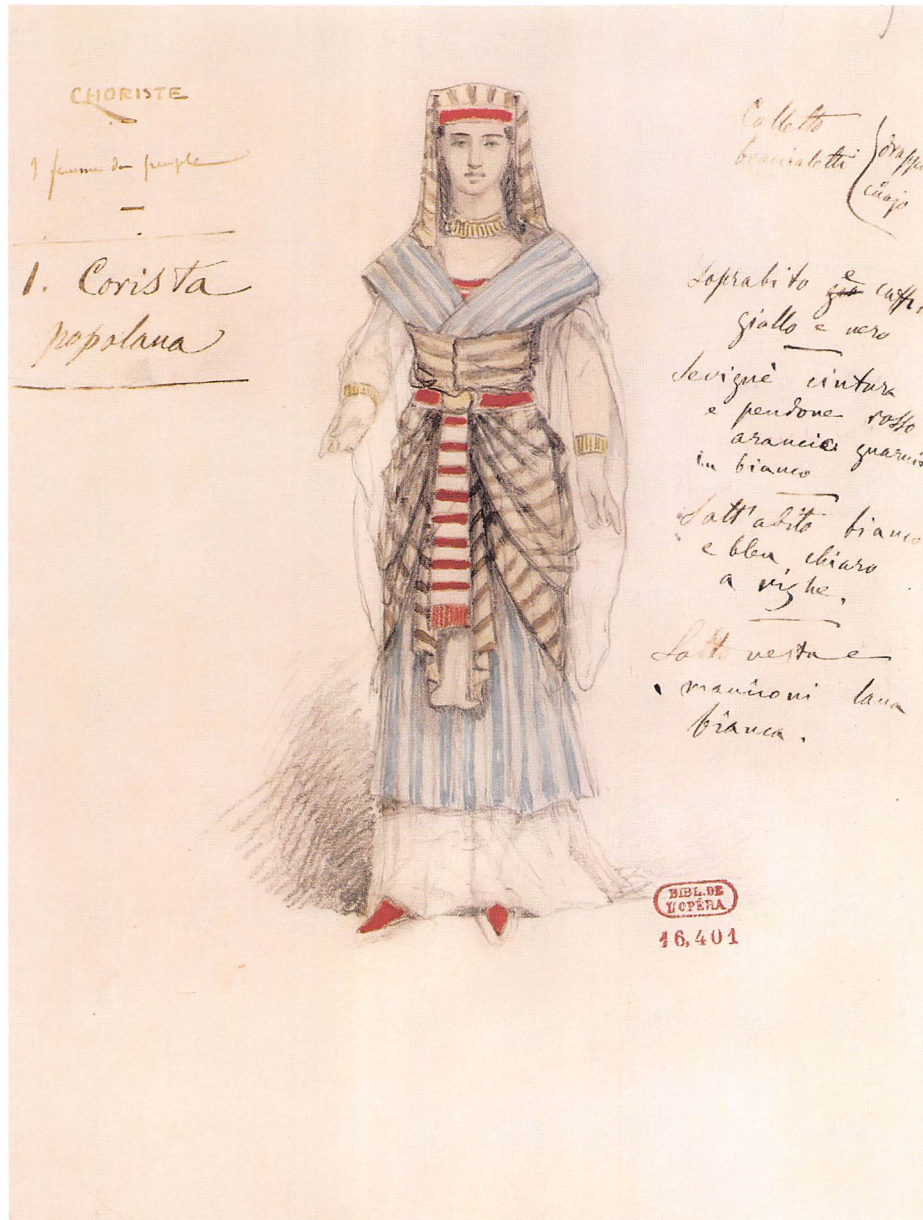 CHORISTE
1 femme du peuple
1. Corista
popolana
Colletto
braccialetti
drapp
cuojo
Soprabito e caffè,
giallo e nero
Sevigné cintura
e pendone rosso
arancio guarnito
in bianco
Sott'abito bianco
e bleu chiaro
a righe.
Sotto veste e
maniconi lana
bianca.
BIBL. DE
L'OPÉRA
16,401